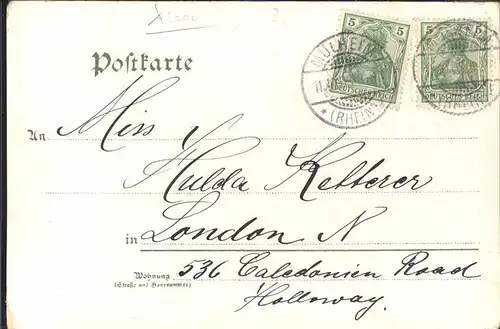 5 5 5 5
MÜLHEIM
DEUTSCHES REICH
* (RHEIN)
Postkarte
An Miss
Hulda Ketterer
in London N
Wohnung 536 Caledonien Road
(Straße und Hausnummer)
Holloway.